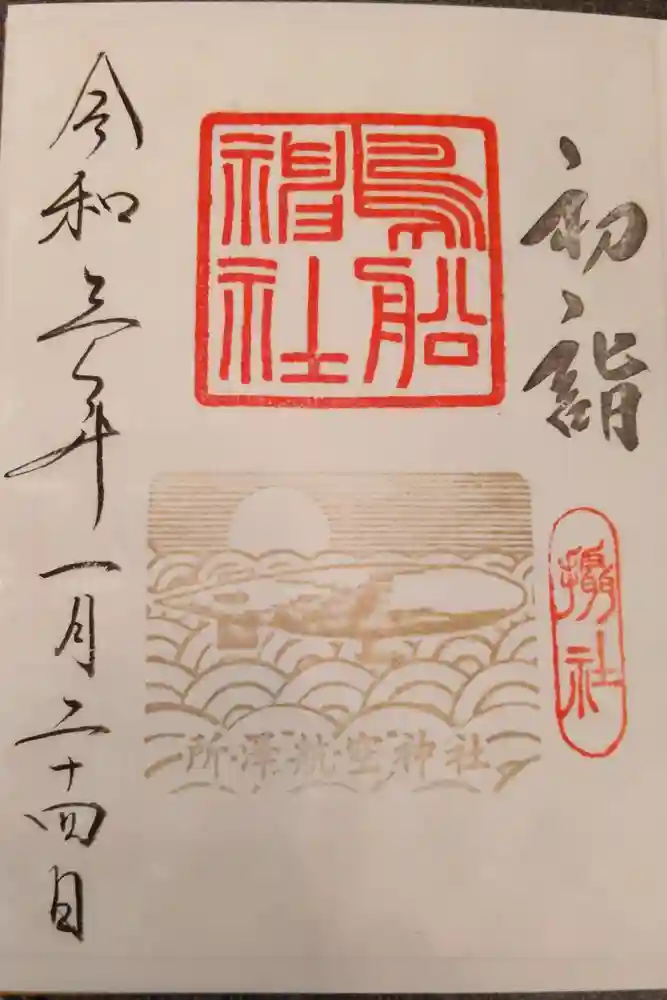 初詣
摂社
鳥船
神社
所澤航空神社
令和三年一月二十四日